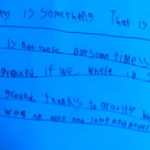 is something That is
is not there But some times
ground. if we where in
ground. thanks to gravity
was an and jump and never